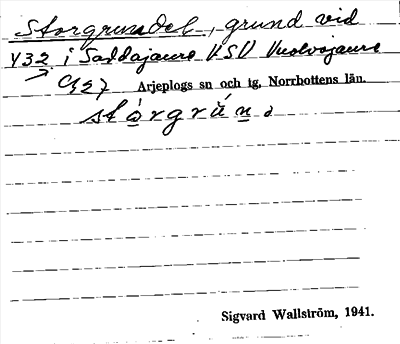 Storgrundet, grund vid
Y32 i Saddajaure VSV Vuolvojaure
C927 Arjeplogs sn och tg, Norrbottens län.
Sigvard Wallström, 1941.